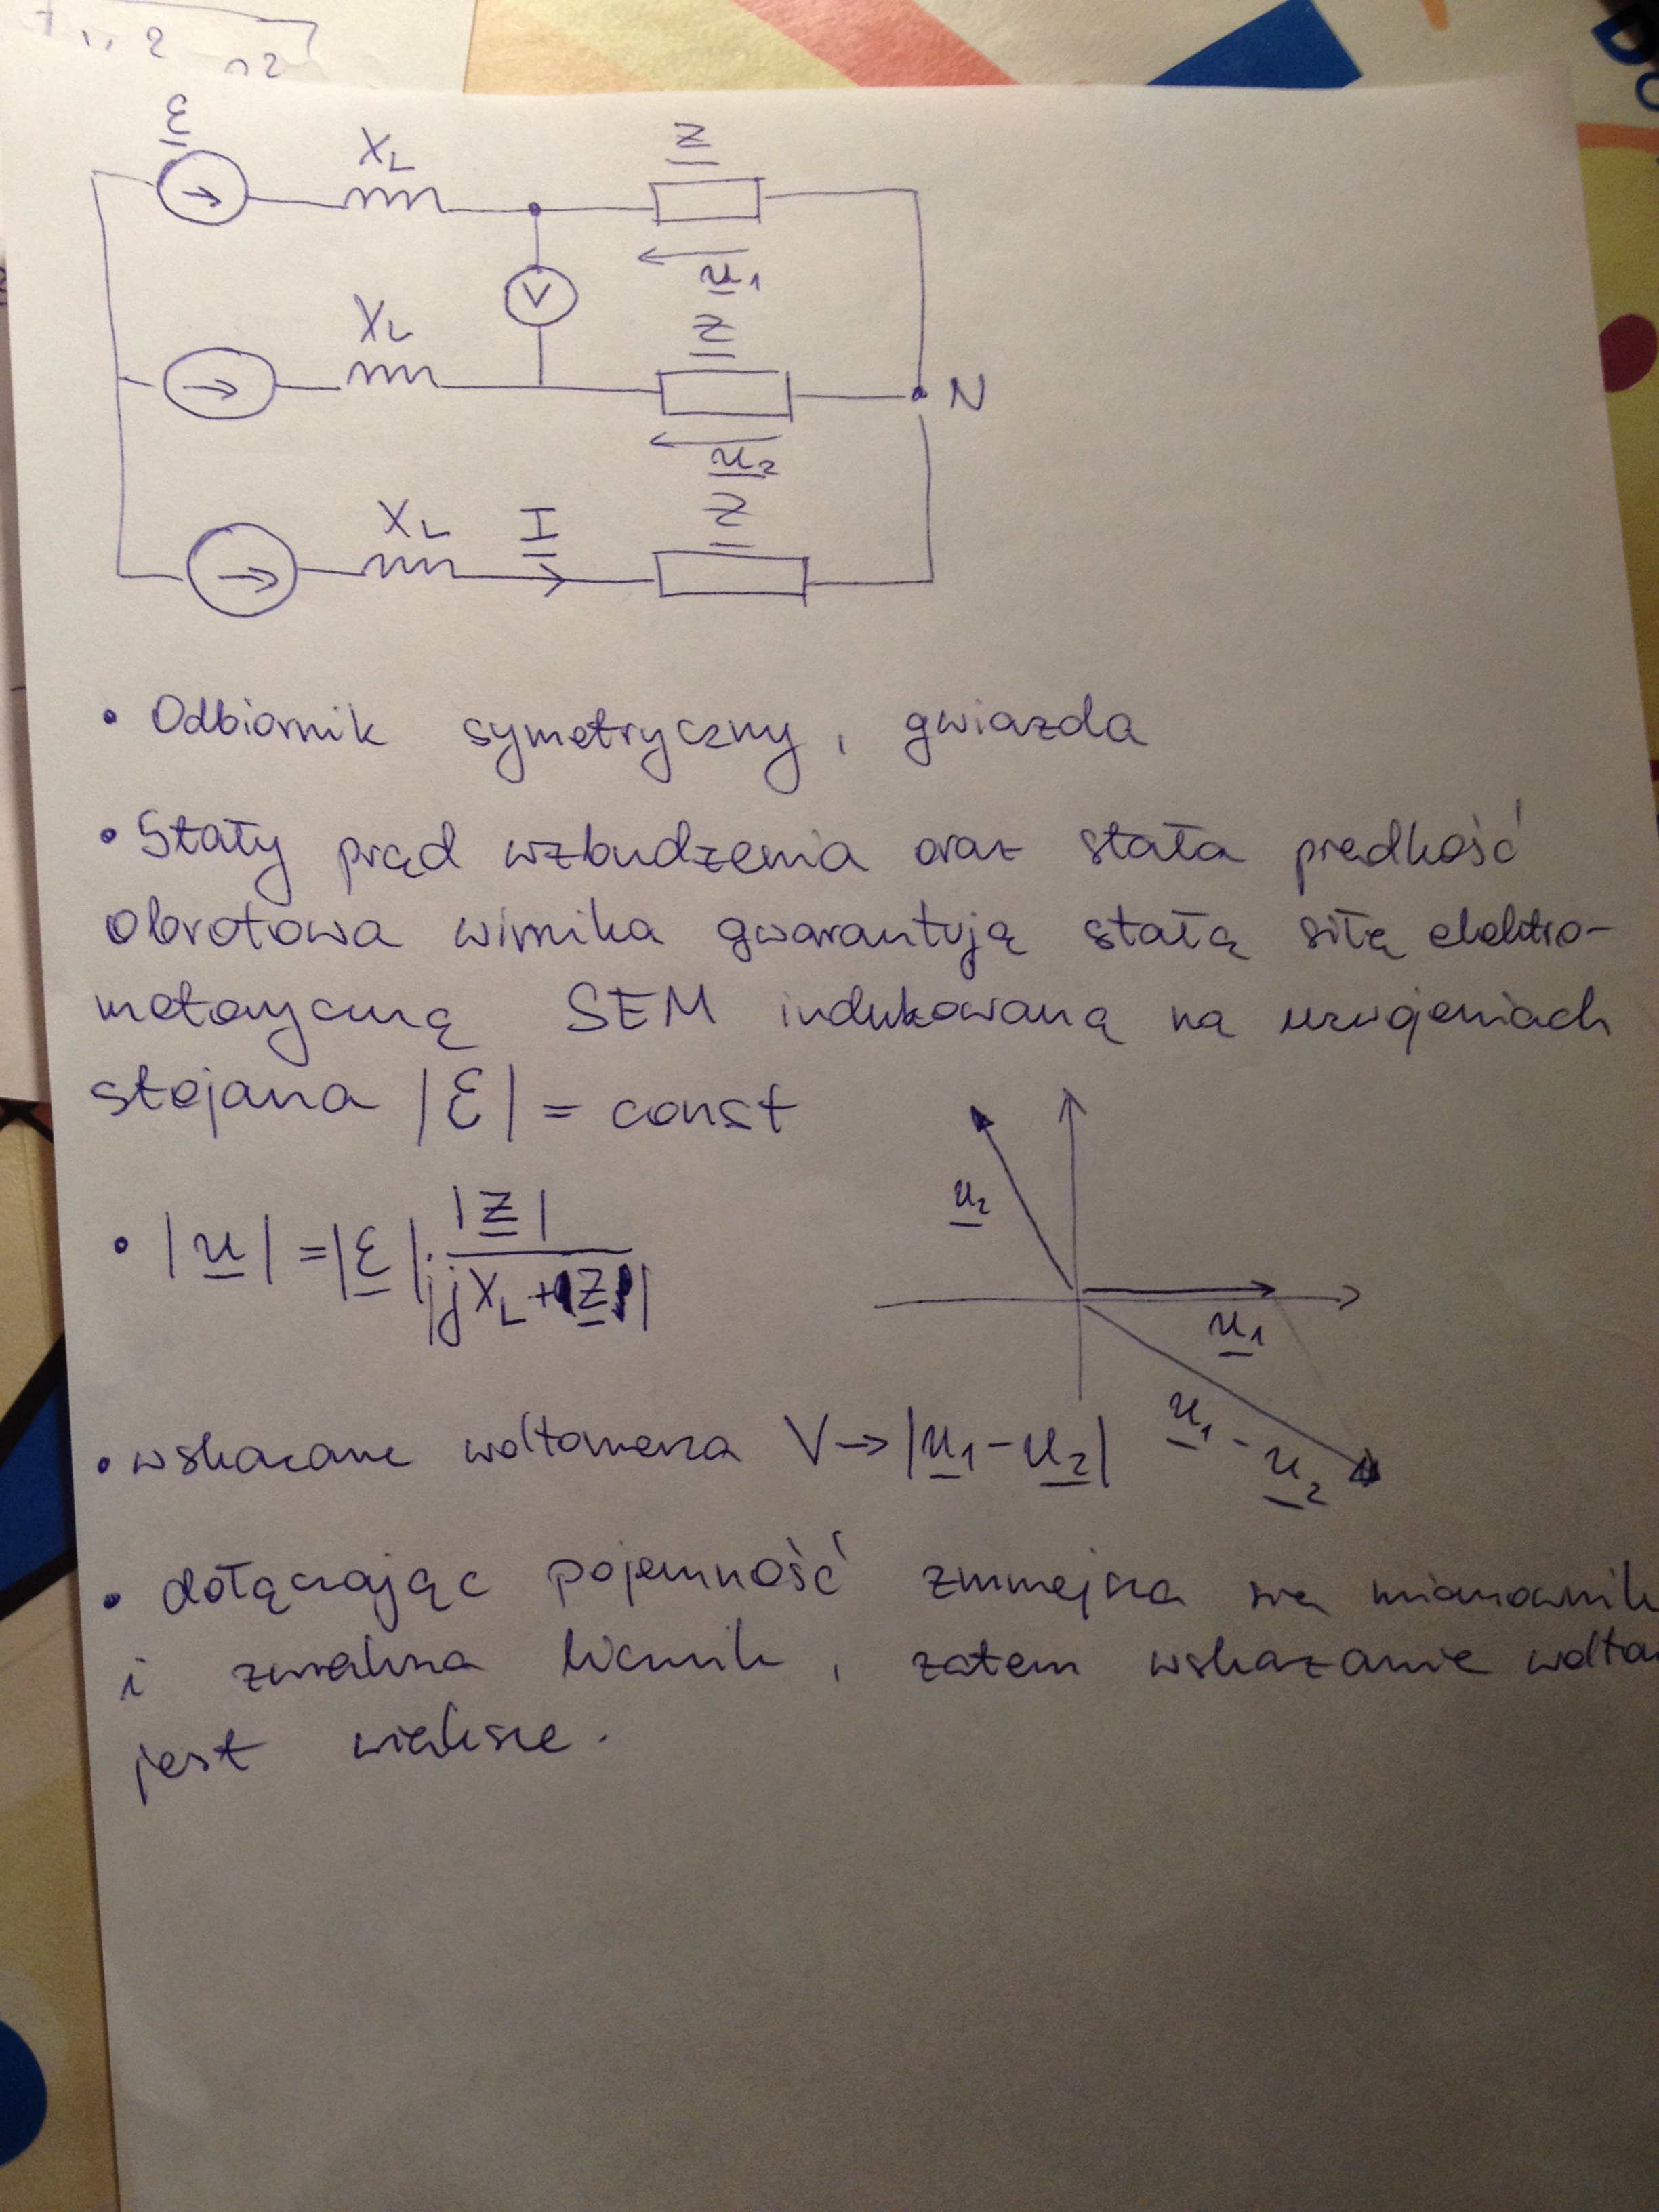 ε
X_L
Z
u₁
V
X_L
Z
N
u₂
X_L
I
Z
• Odbiornik symetryczny, gwiazda
• Stały prąd wzbudzenia oraz stała prędkość
obrotowa wirnika gwarantują stałą siłę elektro-
motoryczną SEM indukowaną na uzwojeniach
stojana |ε| = const
• |u| = |ε| · |Z| / |jX_L + Z|
u₂
u₁
u₁ - u₂
• wskazanie woltomierza V → |u₁ - u₂|
• dołączając pojemność zmniejsza się mianownik
i zwiększa licznik, zatem wskazanie
jest większe.